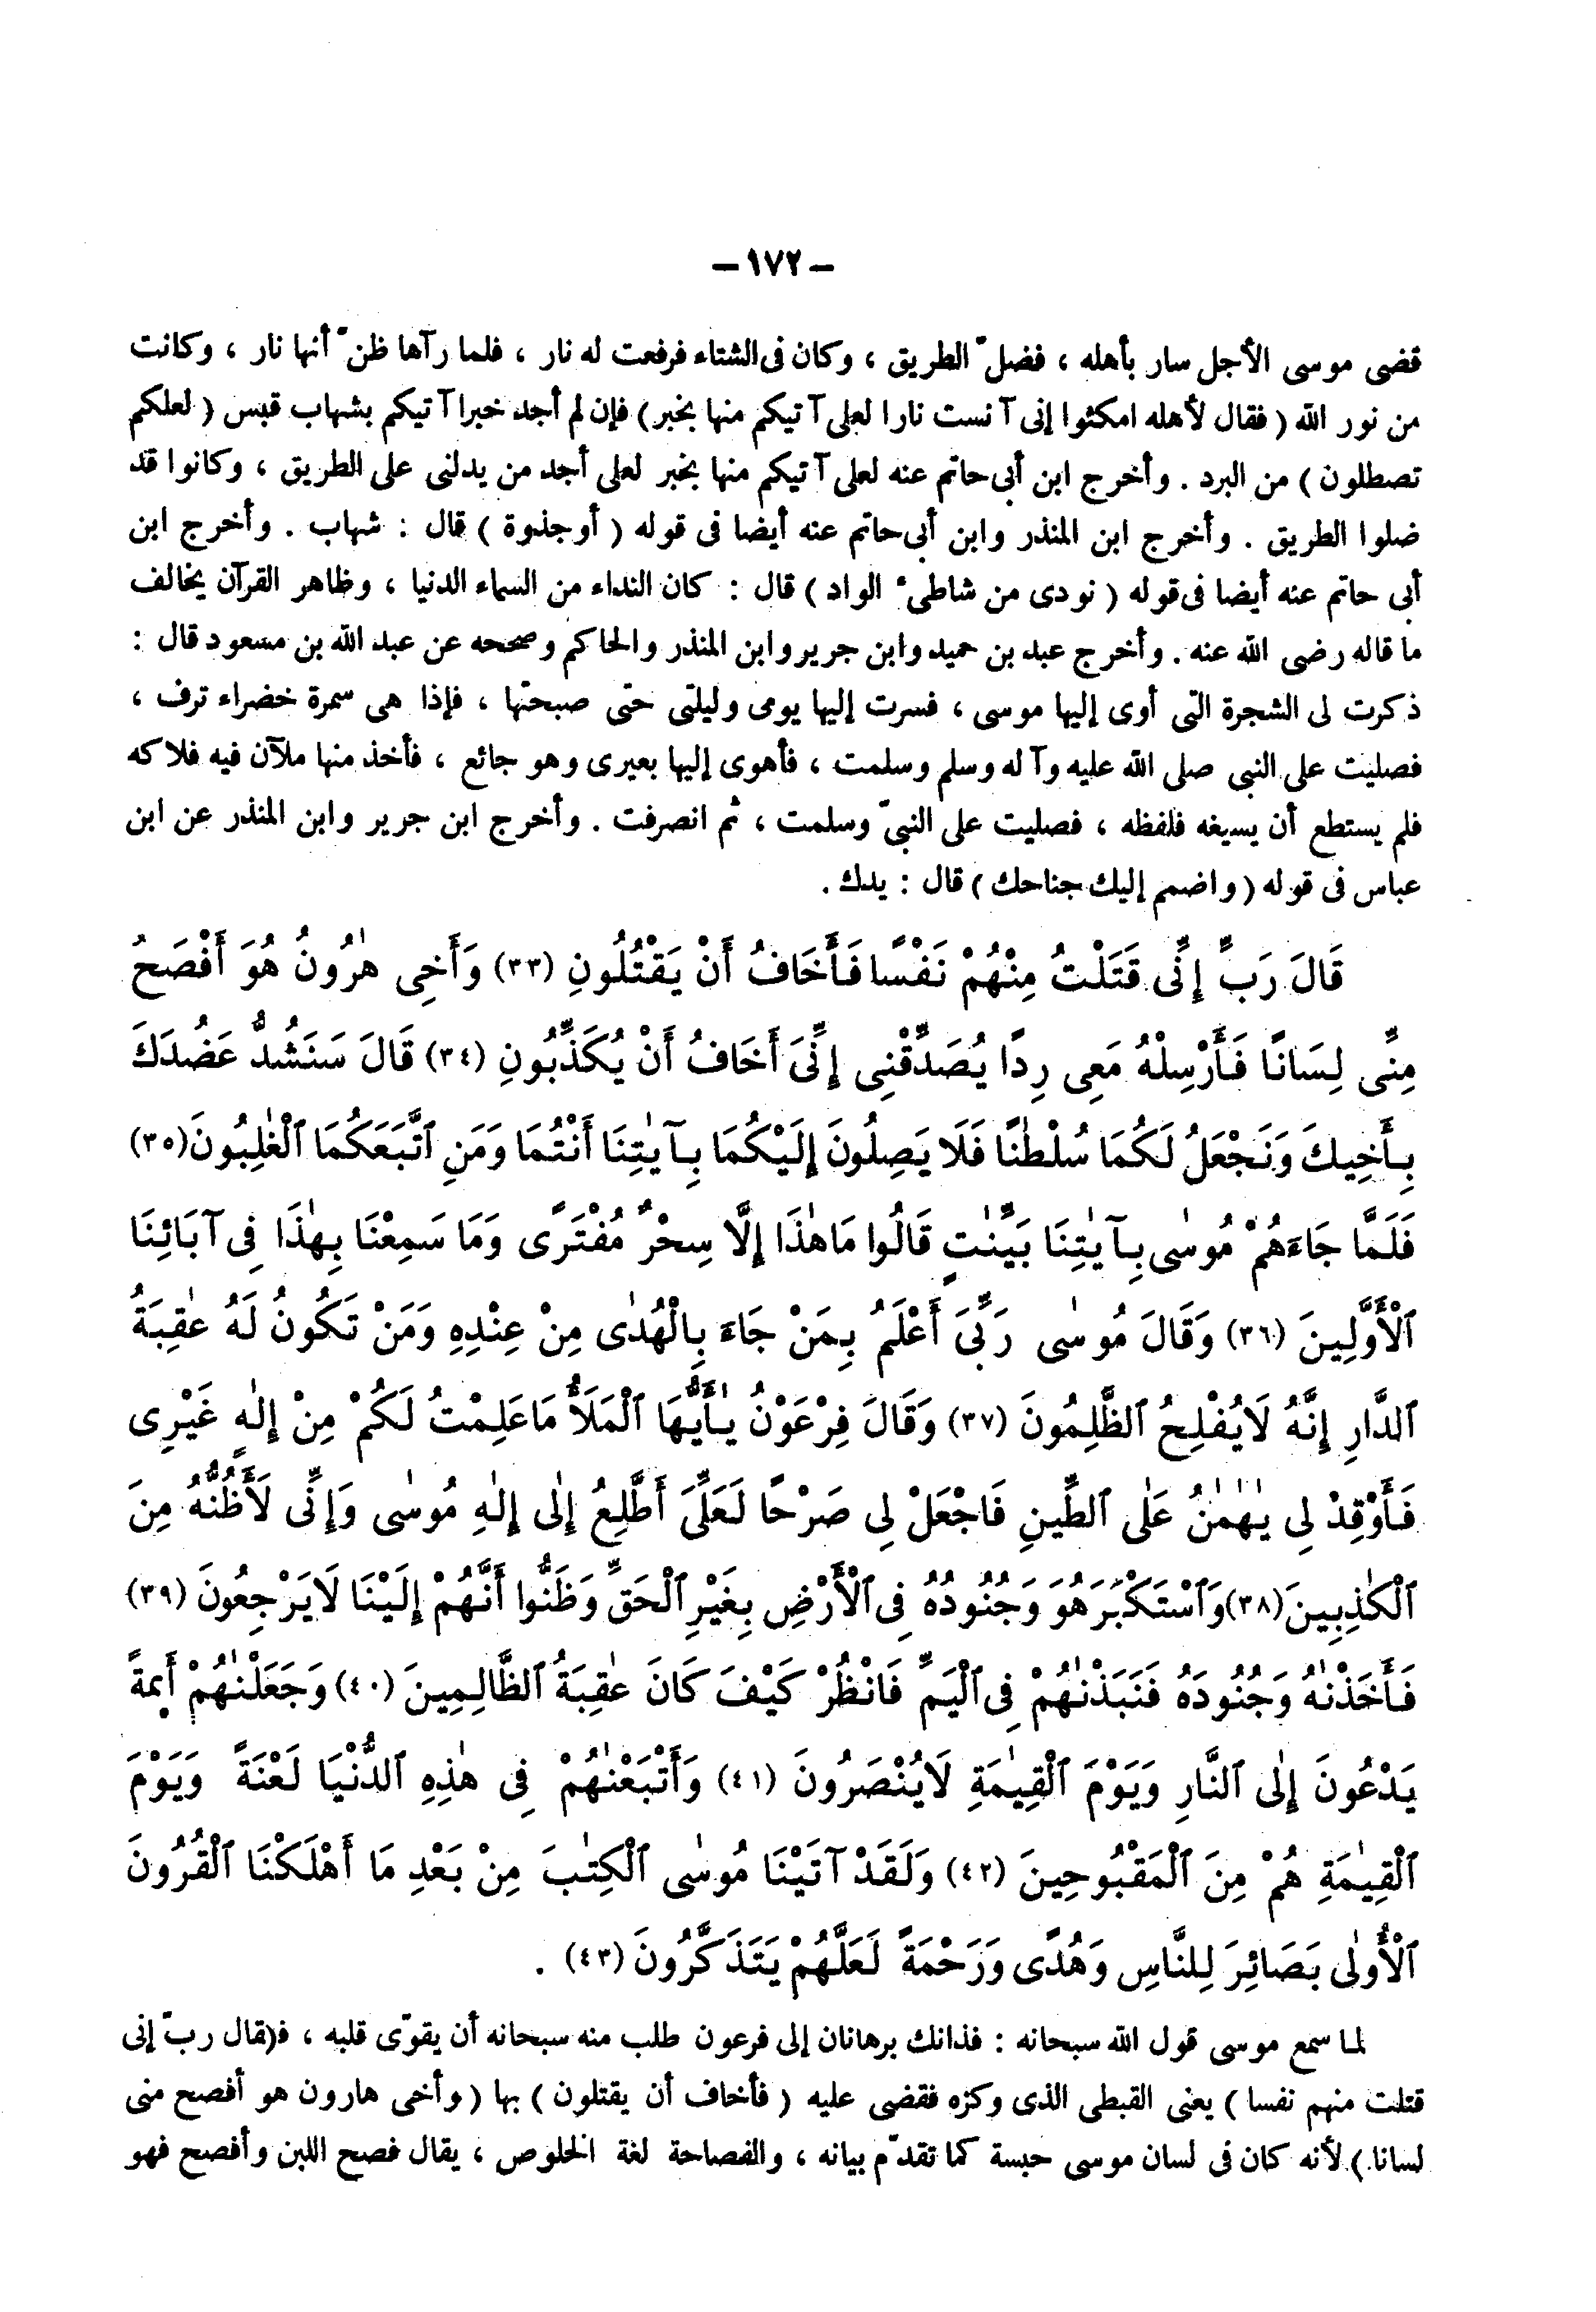 – ١٧٢ –
قضى موسى الأجل سار بأهله ، فضلّ الطريق ، وكان فى الشتاء فرفعت له نار ، فلما رآها ظنّ أنها نار ، وكانت
من نور الله ( فقال لأهله امكثوا إنى آنست نارا لعلى آتيكم منها بخبر ) فإن لم أجد خبرا آتيكم بشهاب قبس ( لعلكم
تصطلون ) من البرد . وأخرج ابن أبى حاتم عنه لعلى آتيكم منها بخبر لعلى أجد من يدلنى على الطريق ، وكانوا قد
ضلوا الطريق . وأخرج ابن المنذر وابن أبى حاتم عنه أيضا فى قوله ( أو جذوة ) قال : شهاب . وأخرج ابن
أبى حاتم عنه أيضا فى قوله ( نودى من شاطىء الواد ) قال : كان النداء من السماء الدنيا ، وظاهر القرآن يخالف
ما قاله رضى الله عنه . وأخرج عبد بن حميد وابن جرير وابن المنذر والحاكم وصححه عن عبد الله بن مسعود قال :
ذكرت لى الشجرة التى أوى إليها موسى ، فسرت إليها يومى وليلتى حتى صبحتها ، فإذا هى سمرة خضراء ترف ،
فصليت على النبى صلى الله عليه وآله وسلم وسلمت ، فأهوى إليها بعيرى وهو جائع ، فأخذ منها ملآن فيه فلاكه
فلم يستطع أن يسيغه فلفظه ، فصليت على النبىّ وسلمت ، ثم انصرفت . وأخرج ابن جرير وابن المنذر عن ابن
عباس فى قوله ( واضمم إليك جناحك ) قال : يدك .
قَالَ رَبِّ إِنِّى قَتَلْتُ مِنْهُمْ نَفْسًا فَأَخَافُ أَنْ يَقْتُلُونِ (٣٣) وَأَخِى هٰرُونُ هُوَ أَفْصَحُ
مِنِّى لِسَانًا فَأَرْسِلْهُ مَعِى رِدًا يُصَدِّقْنِى إِنِّىَ أَخَافُ أَنْ يُكَذِّبُونِ (٣٤) قَالَ سَنَشُدُّ عَضُدَكَ
بِأَخِيكَ وَنَجْعَلُ لَكُمَا سُلْطٰنًا فَلَا يَصِلُونَ إِلَيْكُمَا بِآيٰتِنَا أَنْتُمَا وَمَنِ ٱتَّبَعَكُمَا ٱلْغٰلِبُونَ (٣٥)
فَلَمَّا جَاءَهُمْ مُوسٰى بِآيٰتِنَا بَيِّنٰتٍ قَالُوا مَا هٰذَا إِلَّا سِحْرٌ مُفْتَرًى وَمَا سَمِعْنَا بِهٰذَا فِى آبَائِنَا
ٱلْأَوَّلِينَ (٣٦) وَقَالَ مُوسٰى رَبِّىَ أَعْلَمُ بِمَنْ جَاءَ بِالْهُدٰى مِنْ عِنْدِهِ وَمَنْ تَكُونُ لَهُ عٰقِبَةُ
ٱلدَّارِ إِنَّهُ لَا يُفْلِحُ ٱلظَّلِمُونَ (٣٧) وَقَالَ فِرْعَوْنُ يٰأَيُّهَا ٱلْمَلَأُ مَا عَلِمْتُ لَكُمْ مِنْ إِلٰهٍ غَيْرِى
فَأَوْقِدْ لِى يٰهٰمٰنُ عَلٰى ٱلطِّينِ فَاجْعَلْ لِى صَرْحًا لَعَلِّىَ أَطَّلِعُ إِلٰى إِلٰهِ مُوسٰى وَإِنِّى لَأَظُنُّهُ مِنَ
ٱلْكٰذِبِينَ (٣٨) وَٱسْتَكْبَرَ هُوَ وَجُنُودُهُ فِى ٱلْأَرْضِ بِغَيْرِ ٱلْحَقِّ وَظَنُّوا أَنَّهُمْ إِلَيْنَا لَا يَرْجِعُونَ (٣٩)
فَأَخَذْنٰهُ وَجُنُودَهُ فَنَبَذْنٰهُمْ فِى ٱلْيَمِّ فَانْظُرْ كَيْفَ كَانَ عٰقِبَةُ ٱلظَّالِمِينَ (٤٠) وَجَعَلْنٰهُمْ أَئِمةً
يَدْعُونَ إِلٰى ٱلنَّارِ وَيَوْمَ ٱلْقِيٰمَةِ لَا يُنْصَرُونَ (٤١) وَأَتْبَعْنٰهُمْ فِى هٰذِهِ ٱلدُّنْيَا لَعْنَةً وَيَوْمَ
ٱلْقِيٰمَةِ هُمْ مِنَ ٱلْمَقْبُوحِينَ (٤٢) وَلَقَدْ آتَيْنَا مُوسٰى ٱلْكِتٰبَ مِنْ بَعْدِ مَا أَهْلَكْنَا ٱلْقُرُونَ
ٱلْأُولٰى بَصَائِرَ لِلنَّاسِ وَهُدًى وَرَحْمَةً لَعَلَّهُمْ يَتَذَكَّرُونَ (٤٣) .
لما سمع موسى قول الله سبحانه : فذانك برهانان إلى فرعون طلب منه سبحانه أن يقوّى قلبه ، ف(قال ربّ إنى
قتلت منهم نفسا ) يعنى القبطى الذى وكزه فقضى عليه ( فأخاف أن يقتلون ) بها ( وأخى هارون هو أفصح منى
لسانا ) لأنه كان فى لسان موسى حبسة كما تقدّم بيانه ، والفصاحة لغة الخلوص ، يقال فصح اللبن وأفصح فهو